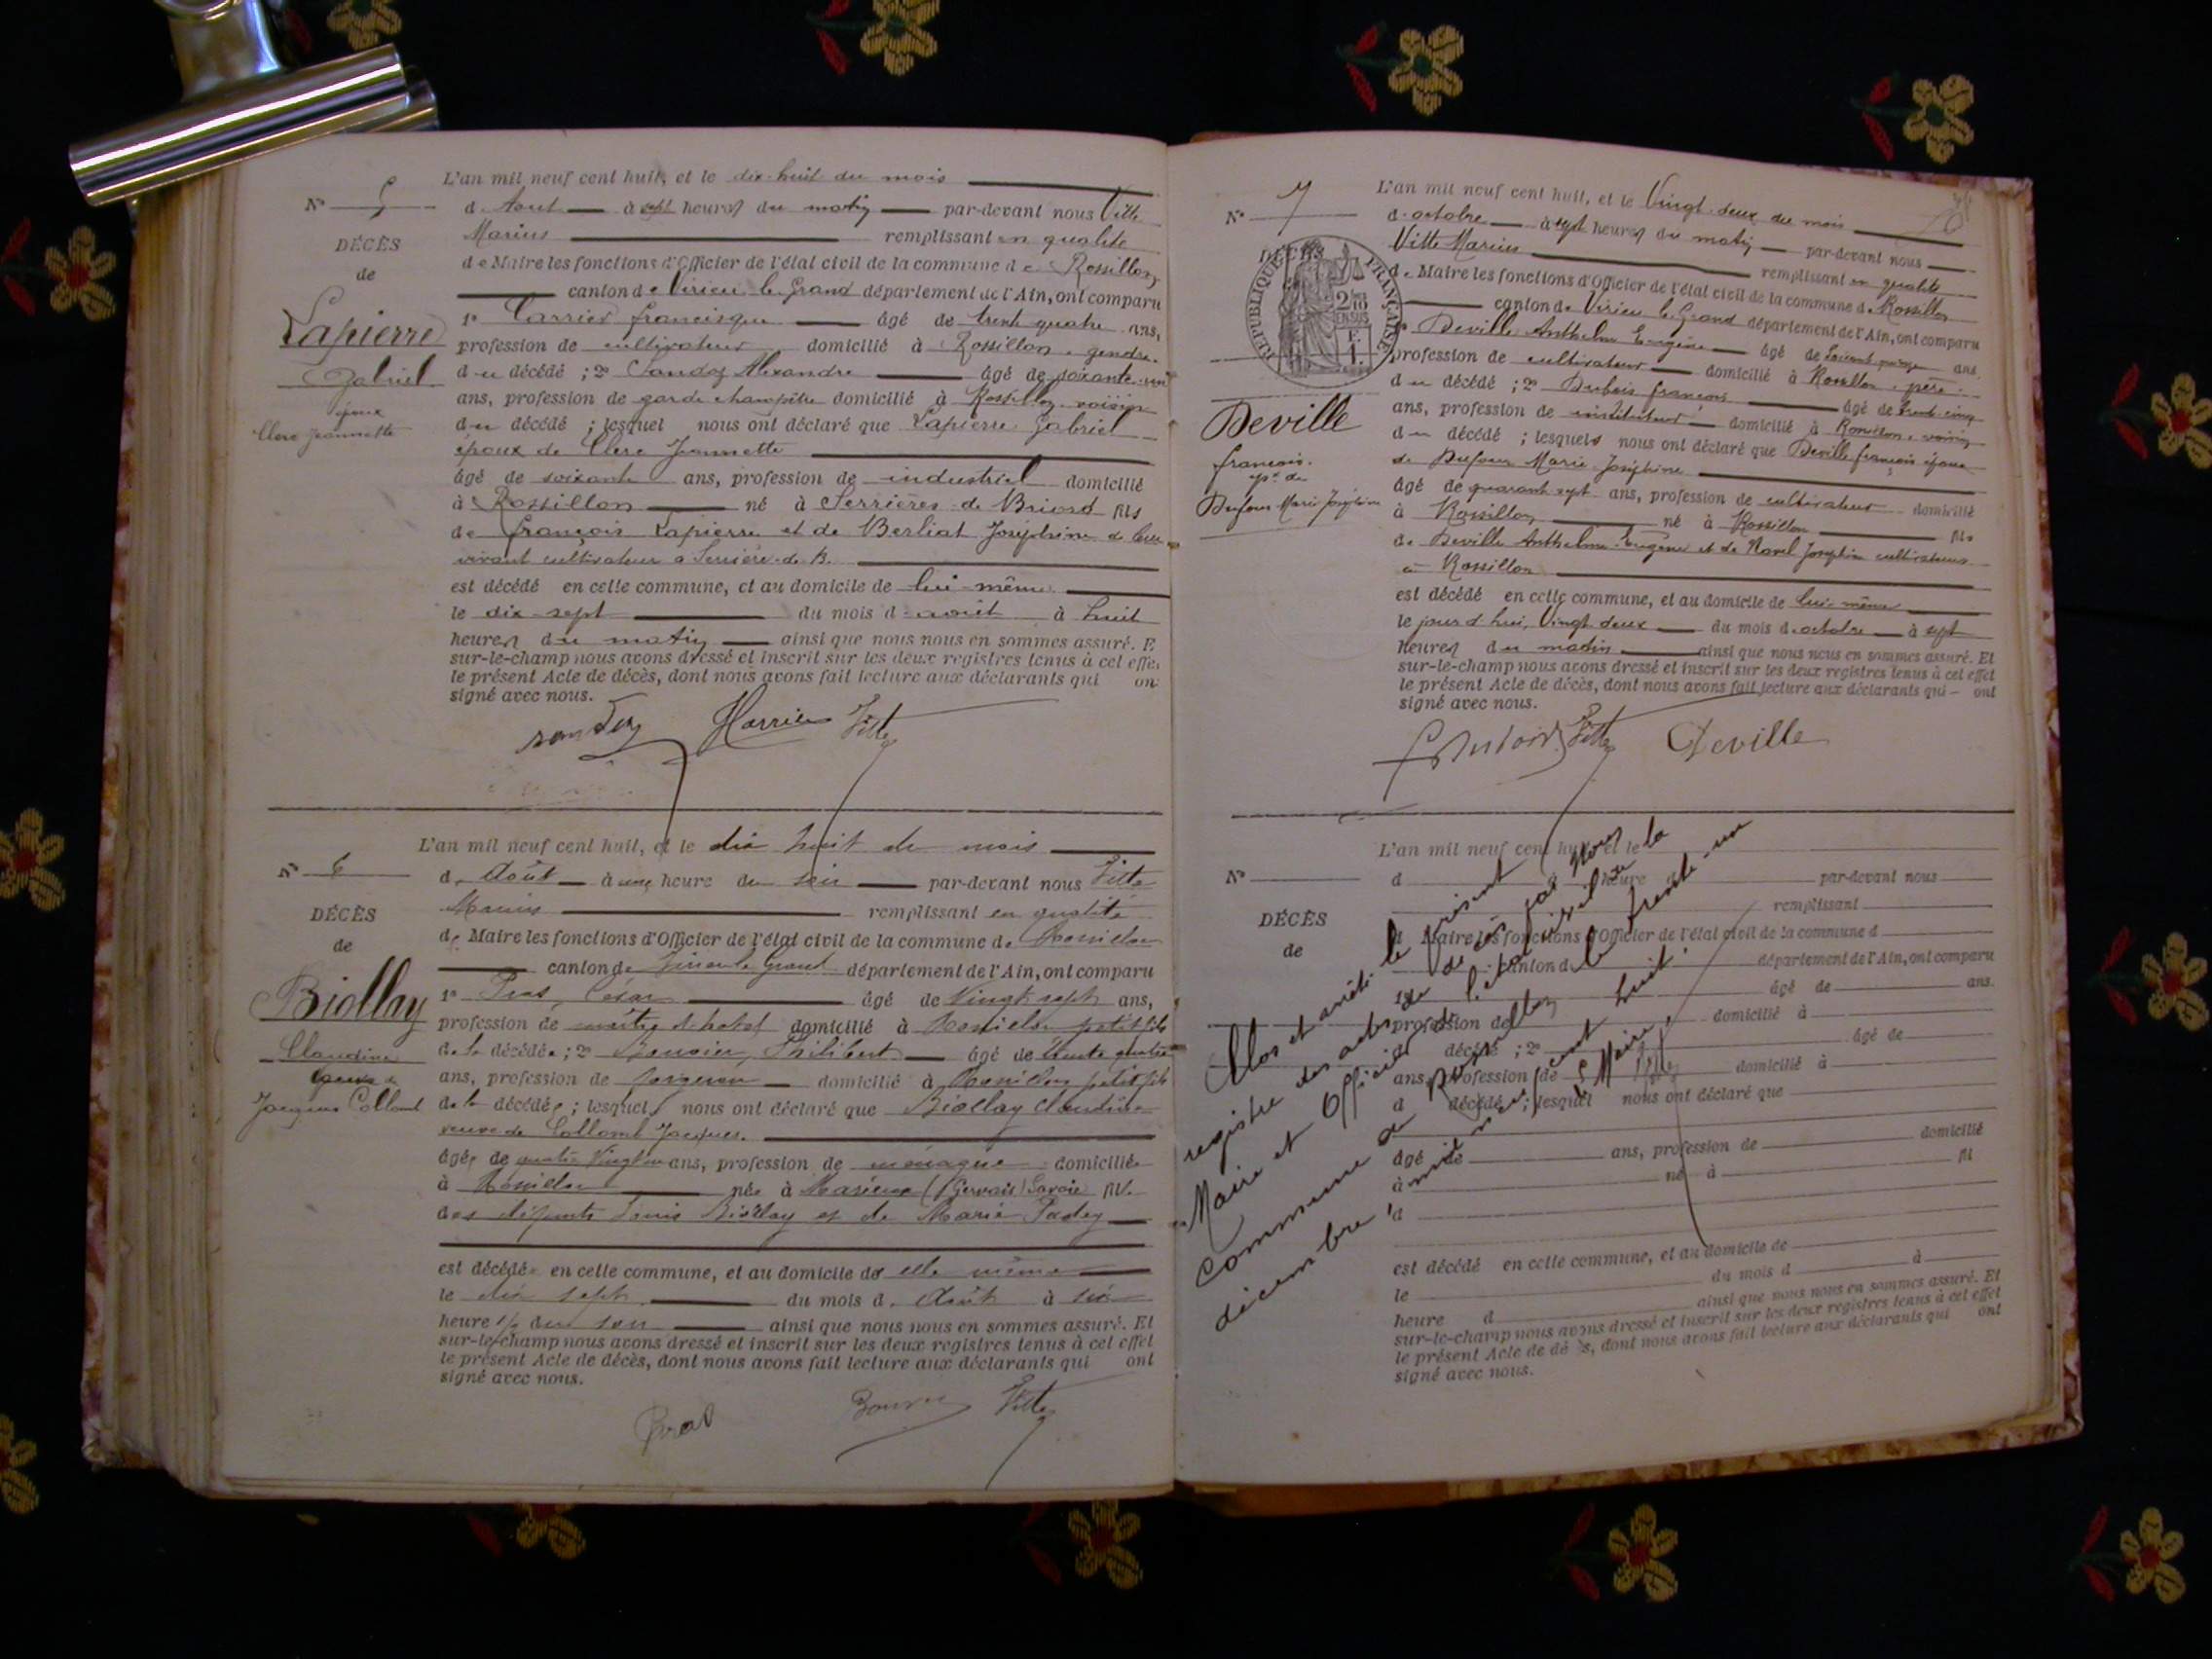 L'an mil neuf cent huit, et le dix-huit du mois
N° 5 d'Aout à sept heures du matin par-devant nous Vitte
Marius remplissant en qualité
DÉCÈS
de Maire les fonctions d'Officier de l'état civil de la commune de Rossillon
de
canton de Virieu le Grand département de l'Ain, ont comparu
Lapierre
1° Carrier francisque âgé de trente quatre ans,
profession de cultivateur domicilié à Rossillon, gendre
Gabriel
du décédé ; 2° Sandoz Alexandre âgé de soixante-un
époux
ans, profession de garde champêtre domicilié à Rossillon voisin
Clerc Jeannette
du décédé ; lesquel nous ont déclaré que Lapierre Gabriel
époux de Clerc Jeannette
âgé de soixante ans, profession de industriel domicilié
à Rossillon né à Serrières de Briord fils
de françois Lapierre et de Berliat Joséphine de leur
vivant cultivateur a Serrière de B.
est décédé en cette commune, et au domicile de lui-même
le dix-sept du mois d'août à huit
heures du matin ainsi que nous nous en sommes assuré. E
sur-le-champ nous avons dressé et inscrit sur les deux registres tenus à cet effe
le présent Acte de décès, dont nous avons fait lecture aux déclarants qui on
signé avec nous.
Vitte
L'an mil neuf cent huit, et le dix huit du mois
N° 6 d'Août à une heure du soir par-devant nous Vitte
Marius remplissant en qualité
DÉCÈS
de Maire les fonctions d'Officier de l'état civil de la commune de Rossillon
de
canton de Virieu le Grand département de l'Ain, ont comparu
Biollay
1° Pras, César âgé de Vingt sept ans,
profession de maître d'hotel domicilié à Rossillon petit fils
Claudine
de la décédée ; 2° Bouvier, Philibert âgé de trente quatre
ans, profession de forgeron domicilié à Rossillon petit fils
Jacques Collomb
de la décédée ; lesquels nous ont déclaré que Biollay Claudine
veuve de Collomb Jacques.
âgée de quatre Vingt ans, profession de ménagère domiciliée
à Rossillon née à (Gervais) Savoie fille
des défunts Biollay et de Marie
est décédée en cette commune, et au domicile de elle même
le dix sept du mois d'Août à six
heure 1/2 du soir ainsi que nous nous en sommes assuré. Et
sur-le-champ nous avons dressé et inscrit sur les deux registres tenus à cet effet
le présent Acte de décès, dont nous avons fait lecture aux déclarants qui ont
signé avec nous.
Pras Bouvier Vitte
L'an mil neuf cent huit, et le Vingt-deux du mois
N° 7 d'octobre à sept heures du matin par-devant nous
DÉCÈS
Vitte Marius remplissant en qualité
RÉPUBLIQUE FRANÇAISE
2/10 EN SUS
F. 1.
de Maire les fonctions d'Officier de l'état civil de la commune de Rossillon
canton de Virieu le Grand département de l'Ain, ont comparu
1° Deville Anthelme Eugène âgé de ans
profession de cultivateur domicilié à Rossillon, père
du décédé ; 2° Dubois françois âgé de trente cinq
Deville
ans, profession de instituteur domicilié à Rossillon, voisin
du décédé ; lesquels nous ont déclaré que Deville françois époux
françois
de Dufour Marie Joséphine
Dufour Marie Joséphine
âgé de quarante sept ans, profession de cultivateur domicilié
à Rossillon né à Rossillon fils
de Deville Anthelme Eugène et de Joséphine cultivateurs
à Rossillon
est décédé en cette commune, et au domicile de lui-même
le jour d'hui, Vingt deux du mois d'octobre à sept
heures du matin ainsi que nous nous en sommes assuré. Et
sur-le-champ nous avons dressé et inscrit sur les deux registres tenus à cet effet
le présent Acte de décès, dont nous avons fait lecture aux déclarants qui ont
signé avec nous.
Vitte Deville
L'an mil neuf cent huit, et le
N° d à heure par-devant nous
remplissant
DÉCÈS
d Maire les fonctions d'Officier de l'état civil de la commune d
de
canton d département de l'Ain, ont comparu
1° âgé de ans.
profession de domicilié à
décédé ; 2° âgé de
ans, profession de domicilié à
d décédé ; lesquel nous ont déclaré que
âgé de ans, profession de domicilié
à né à fil
d
est décédé en cette commune, et au domicile de
le du mois d à
heure d ainsi que nous nous en sommes assuré. Et
sur-le-champ nous avons dressé et inscrit sur les deux registres tenus à cet effet
le présent Acte de décès, dont nous avons fait lecture aux déclarants qui ont
signé avec nous.
Clos et arrêté le présent
registre des actes de décès par Nous
Maire et Officier de l'état civil de la
commune de Rossillon le trente-un
décembre mil neuf cent huit.
Le Maire,
Vitte